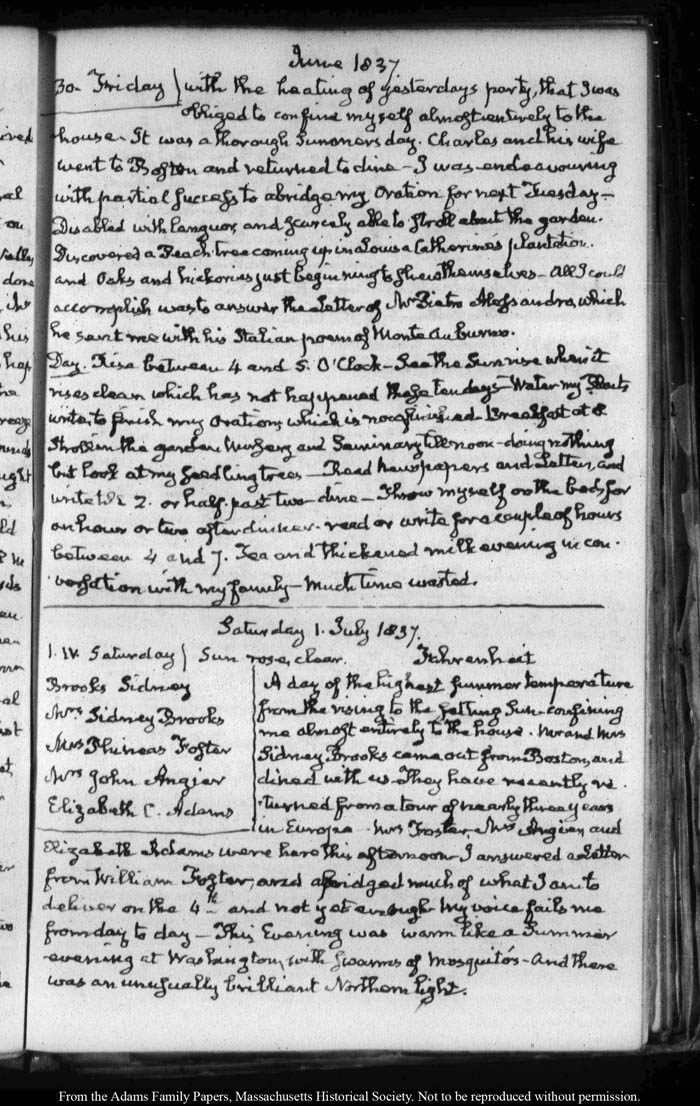 June 1837
30. Friday) with the heating of yesterdays party, that I was
obliged to confine myself almost entirely to the
house. It was a thorough Summers day. Charles and his wife
went to Boston and returned to dine – I was endeavouring
with partial success to abridge my Oration for next Tuesday –
Disabled with languor, and scarcely able to stroll about the garden.
Discovered a Peach tree coming up in Louisa Catherine's plantation.
and Oaks and hickories just beginning to shew themselves – All I could
accomplish was to answer the Letter of Mr Pietro Alessandro, which
he sent me with his Italian poem of Monte Auburno.
Day. Rise between 4 and 5. O'Clock – See the Sun rise when it
rises clear which has not happened these ten days – Water my Plants
write to finish my Oration, which is now finished. Breakfast at 8
Stroll in the garden Nursery and Seminary till noon – doing nothing
but look at my Seedling trees – Read Newspapers and Letters, and
write till 2. or half past two – dine – Throw myself on the bed for
an hour or two after dinner. read or write for a couple of hours
between 4 and 7. Tea and thickened milk evening in con-
versation with my family – Much time wasted.
Saturday 1. July 1837.
1. IV. Saturday) Sun rose, clear. Fahrenheit
Brooks Sidney
Mrs Sidney Brooks
Mrs Phineas Foster
Mrs John Angier
Elizabeth C. Adams
A day of the highest summer temperature
from the rising to the setting Sun – confining
me almost entirely to the house. Mr and Mrs
Sidney Brooks came out from Boston, and
dined with us – They have recently re-
turned from a tour of nearly three years
in Europe – Mrs Foster, Mrs Angier, and
Elizabeth Adams were here this afternoon – I answered a Letter
from William Foster, and abridged much of what I am to
deliver on the 4th and not yet enough – My voice fails me
from day to day – This Evening was warm like a Summer
evening at Washington, with swarms of Mosquito's – And there
was an unusually brilliant Northern light.
From the Adams Family Papers, Massachusetts Historical Society. Not to be reproduced without permission.